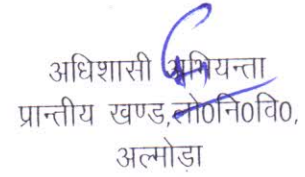 अधिशासी अभियन्ता
प्रान्तीय खण्ड,लो०नि०वि०,
अल्मोड़ा